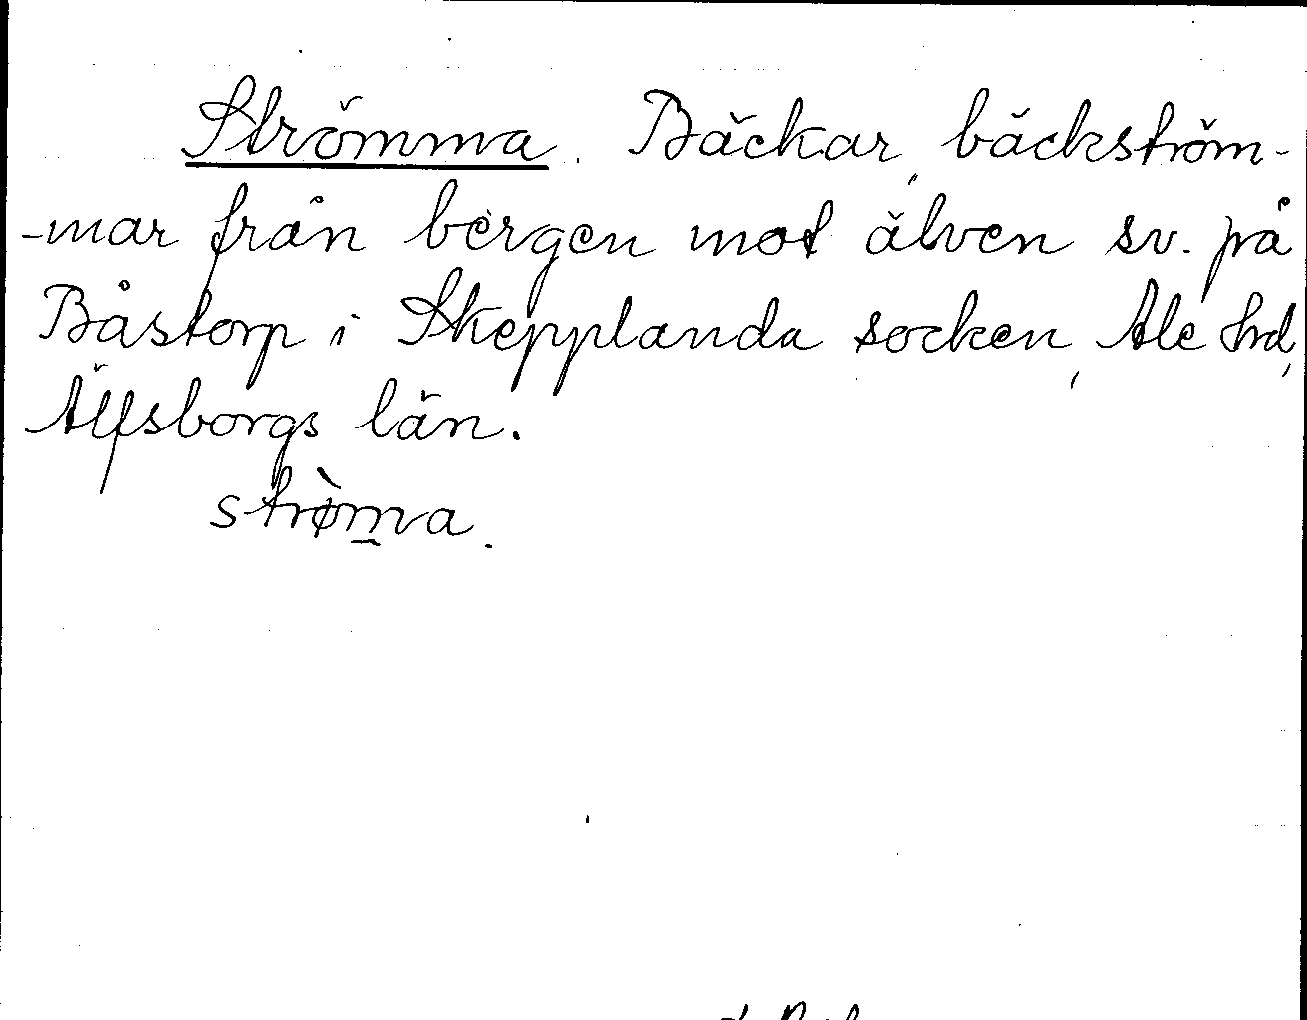 Strömma. Bäckar, bäckström-
-mar från bergen mot älven sv. på
Båstorp i Skepplanda socken, Ale hrd,
Älfsborgs län.
strø̀m̲a.